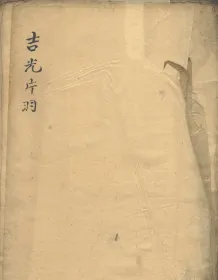 吉光片羽